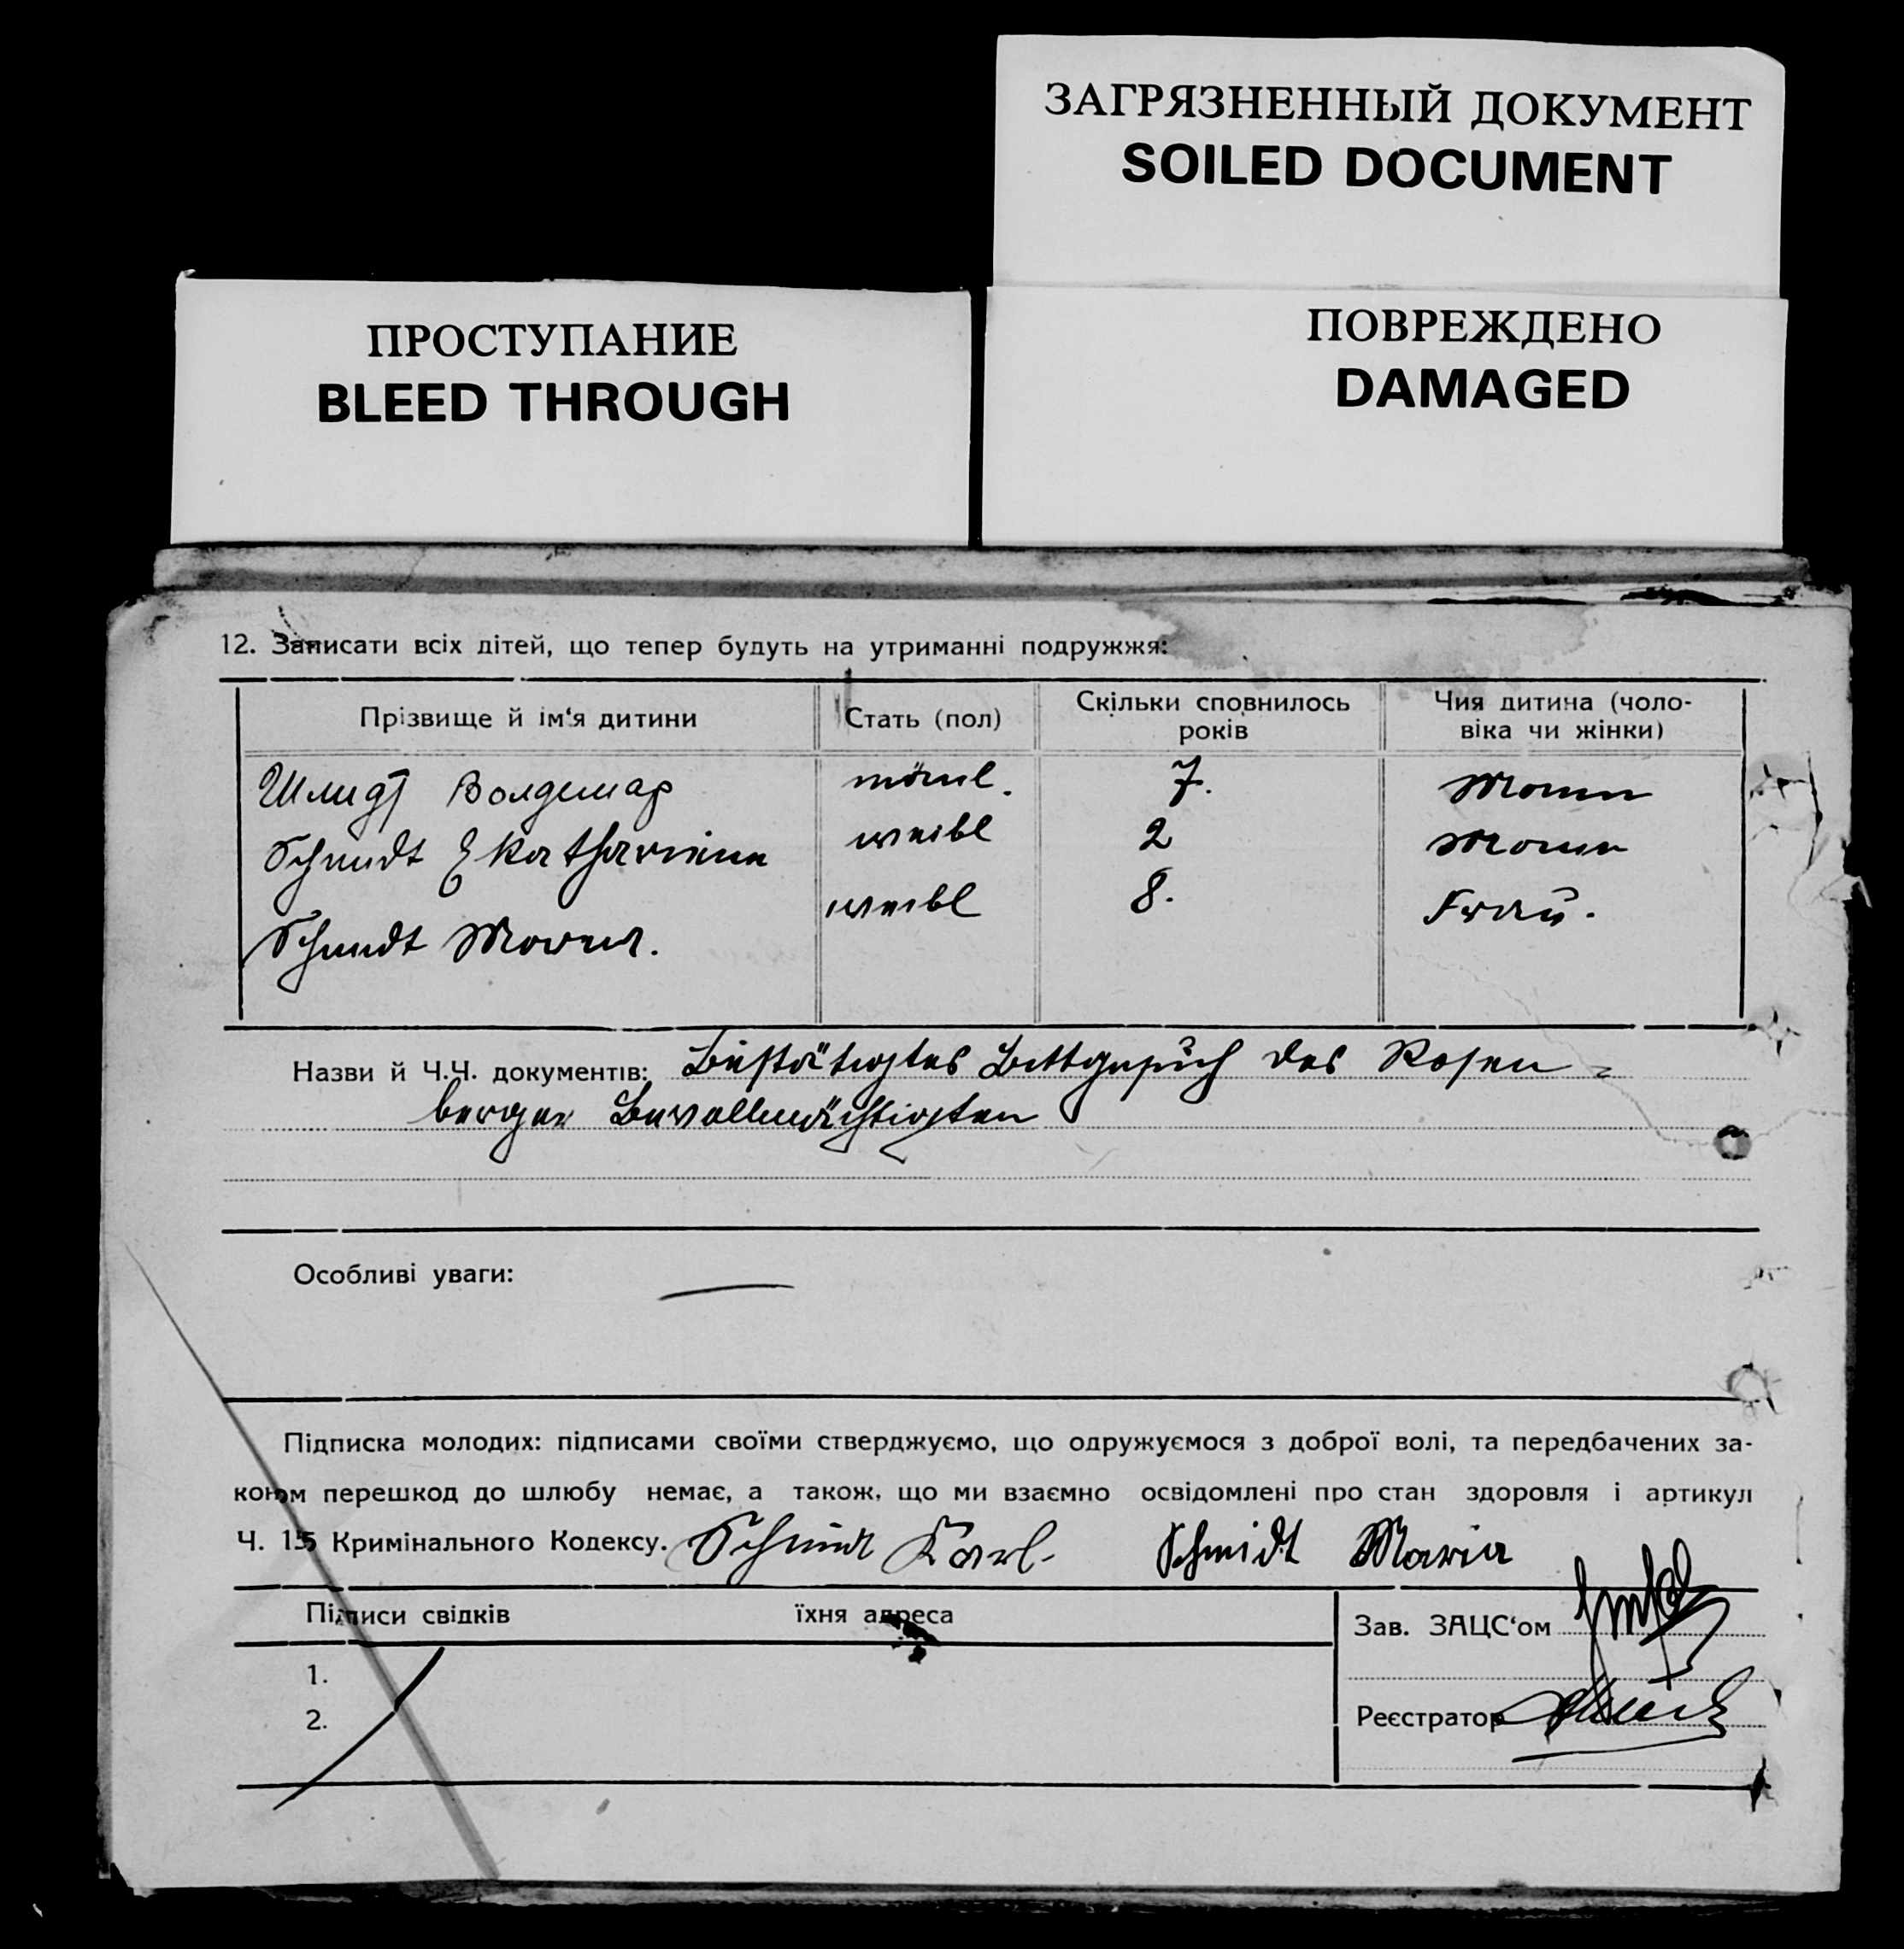 ЗАГРЯЗНЕННЫЙ ДОКУМЕНТ
SOILED DOCUMENT
ПРОСТУПАНИЕ
BLEED THROUGH
ПОВРЕЖДЕНО
DAMAGED
12. Записати всіх дітей, що тепер будуть на утриманні подружжя:
Прізвище й ім‘я дитини Стать (пол) Скільки сповнилось років Чия дитина (чоло-
віка чи жінки)
Шмидт Волдемар männl. 7. Mann
Schmidt Ekatharina weibl 2 Mann
Schmidt Maria. weibl 8. Frau.
Назви й Ч.Ч. документів: Bestätigtes Bittgesuch des Rosen-
berger Bevollmächtigten
Особливі уваги: —
Підписка молодих: підписами своїми стверджуємо, що одружуємося з доброї волі, та передбачених за-
коном перешкод до шлюбу немає, а також, що ми взаємно освідомлені про стан здоровля і артикул
Ч. 15 Кримінального Кодексу. Schmidt Karl. Schmidt Maria
Підписи свідків їхня адреса
Зав. ЗАЦС‘ом
1.
2.
Реєстратор